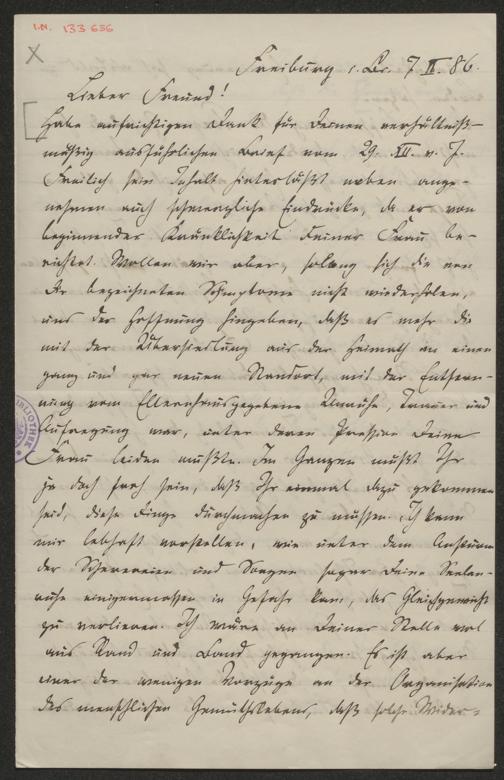 I.N. 133 636
X
Freiburg i. Br. 7. II. 86.
Lieber Freund!
Habe aufrichtigen Dank für Deinen verhältniß-
mäßig ausführlichen Brief vom 29. XII. v. J.
Freilich sein Inhalt hinterläßt neben ange-
nehmen auch schmerzliche Eindrücke, da er von
beginnender Kränklichkeit Deiner Frau be-
richtet. Wollen wir aber, solang sich die von
Dir bezeichneten Symptome nicht wiederholen,
uns der Hoffnung hingeben, daß es mehr die
mit der Übersiedlung aus der Heimath an einen
ganz und gar neuen Standort, mit der Entfern-
ung vom Elternhaus gegebene Unruhe, Trauer und
Aufregung war, unter deren Pression Deine
Frau leiden mußte. Im Ganzen müßt Ihr
ja doch froh sein, daß Ihr einmal dazu gekommen
seid, diese Dinge durchmachen zu müssen. Ich kann
mir lebhaft vorstellen, wie unter dem Ansturm
der Scherereien und Sorgen sogar Deine Seelen-
ruhe einigermassen in Gefahr kam, das Gleichgewicht
zu verlieren. Ich wäre an Deiner Stelle wol
aus Rand und Band gegangen. Es ist aber
einer der wenigen Vorzüge an der Organisation
des menschlichen Gemüthslebens, daß solche Wider-